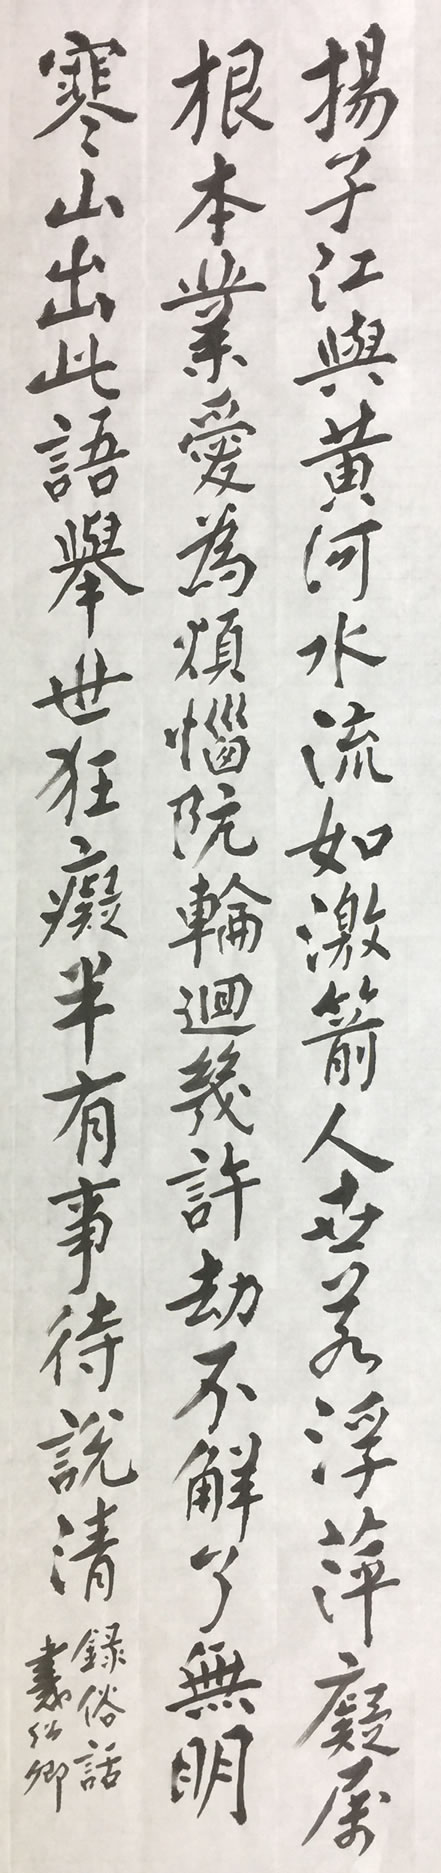 揚子江與黄河水流如激箭人世若浮萍癡属
根本業愛為煩惱阬輪迴幾許劫不解了無明
寒山出此語舉世狂癡半有事待説清
録俗話